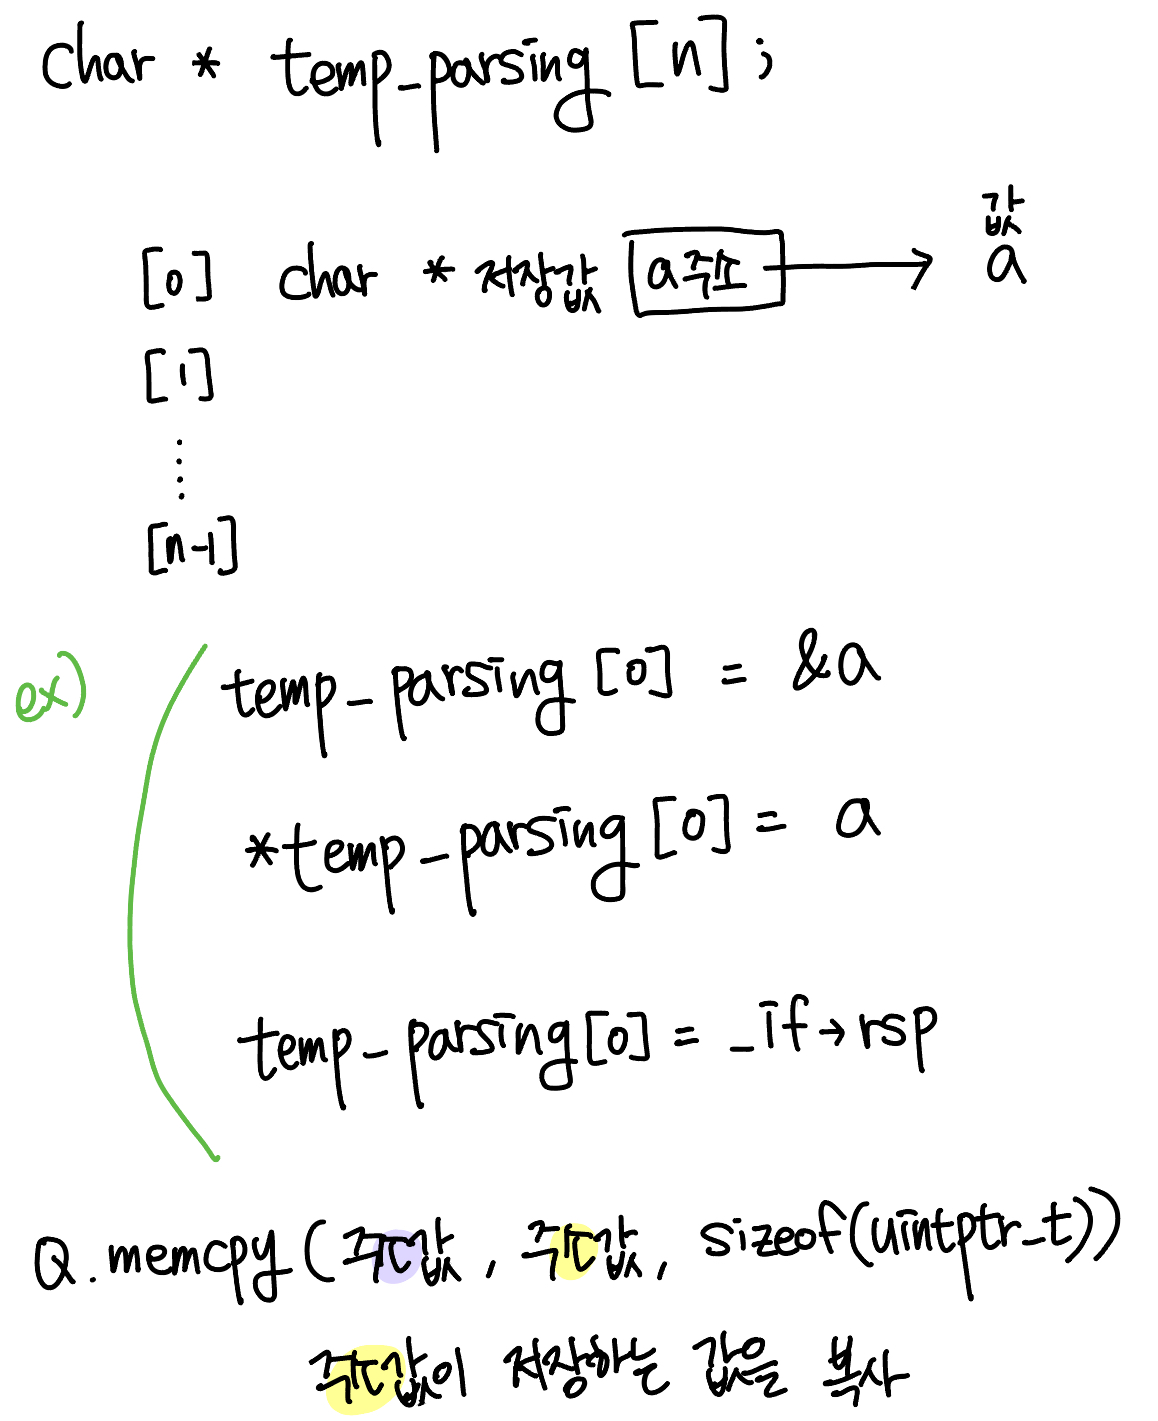 char * temp_parsing [n] ;
값
[0] char * 저장값 a주소 → a
[1]
⋮
[n-1]
ex) temp_parsing [0] = &a
*temp_parsing [0] = a
temp_parsing[0] = _if→rsp
Q. memcpy ( 주소값 , 주소값, sizeof(uintptr_t))
주소값이 저장하는 값을 복사